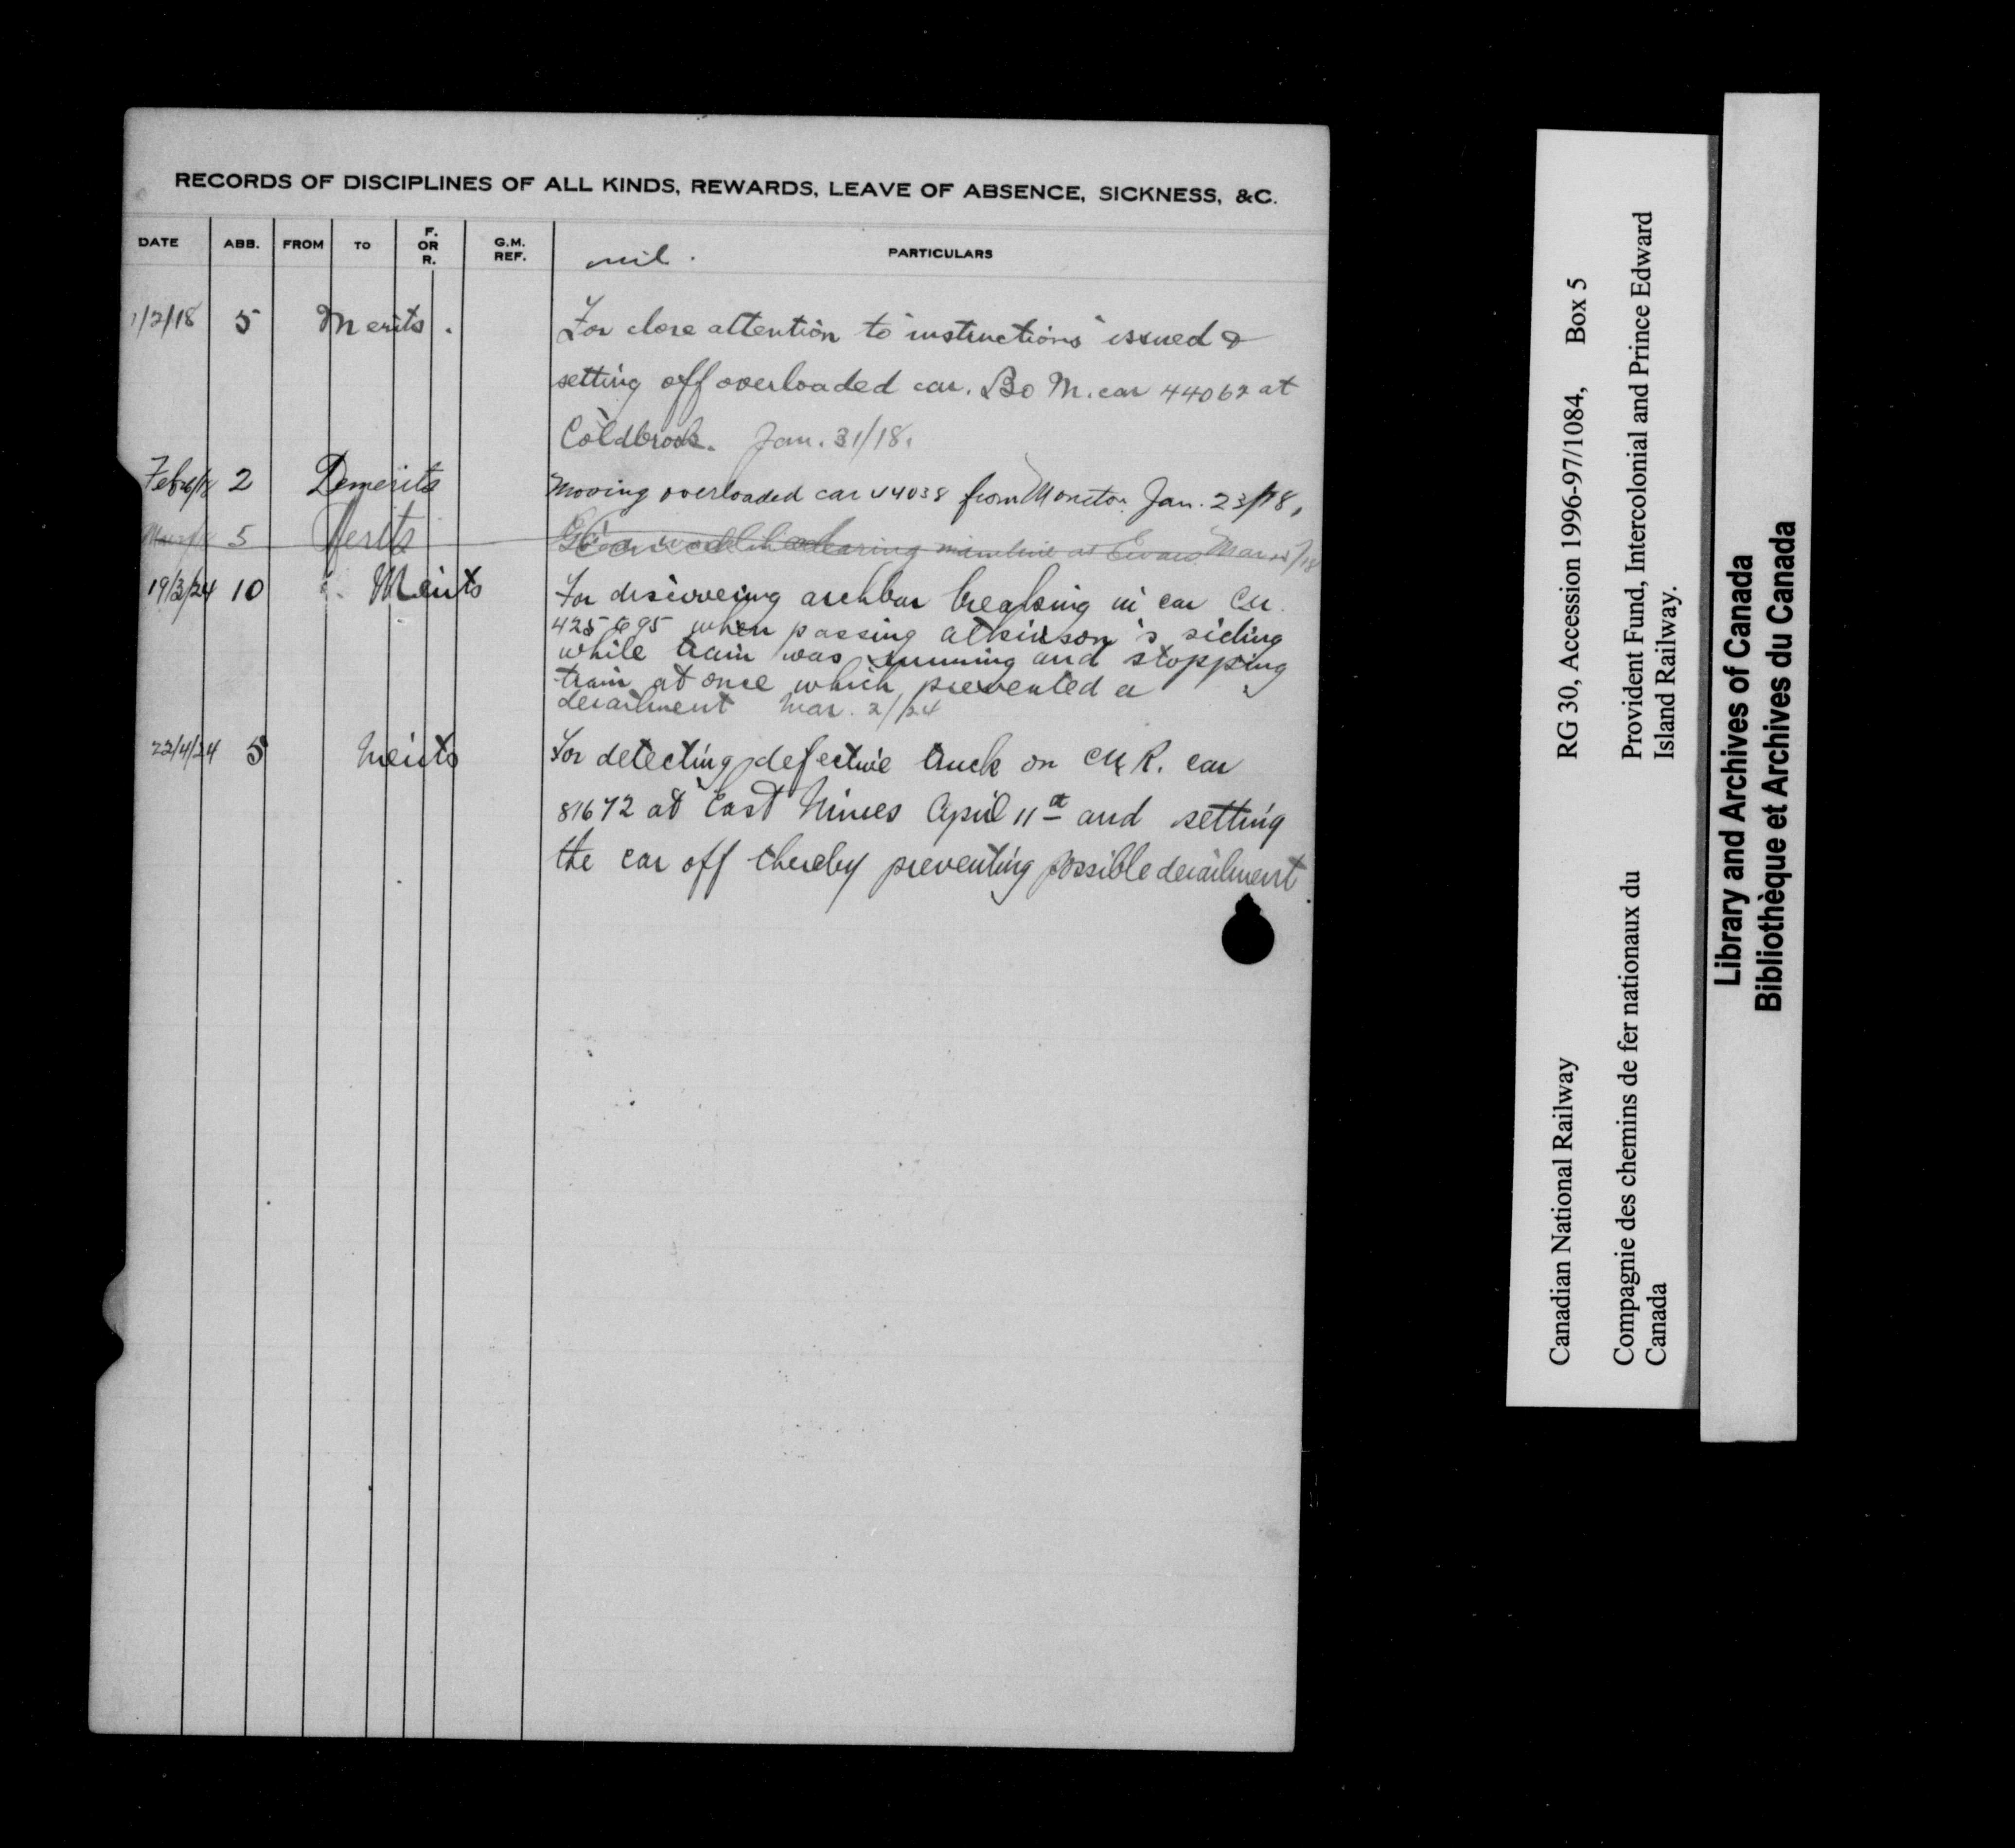 RECORDS OF DISCIPLINES OF ALL KINDS, REWARDS, LEAVE OF ABSENCE, SICKNESS, &C.
DATE ABB. FROM TO F. OR R. G.M. REF. PARTICULARS
nil.
1/2/18 5 Merits. For close attention to "instructions" issued &
setting off overloaded car. B o M. car 44062 at
Coldbrook. Jan. 31/18.
2 Demerits Moving overloaded car 44038 from Moncton Jan. 23/18.
5 Merits clearing mainline at Evans Mar
19/3/24 10 Merits For discovering archbar breaking in car CN.
425695 when passing atkinson's siding
while train was running and stopping
train at once which prevented a
derailment Mar. 2/24
22/4/24 5 Merits For detecting defective truck on CNR. car
81672 at East Mines April 11st and setting
the car off thereby preventing possible derailment
Canadian National Railway RG 30, Accession 1996-97/1084, Box 5
Compagnie des chemins de fer nationaux du Canada
Provident Fund, Intercolonial and Prince Edward
Island Railway.
Library and Archives of Canada
Bibliothèque et Archives du Canada